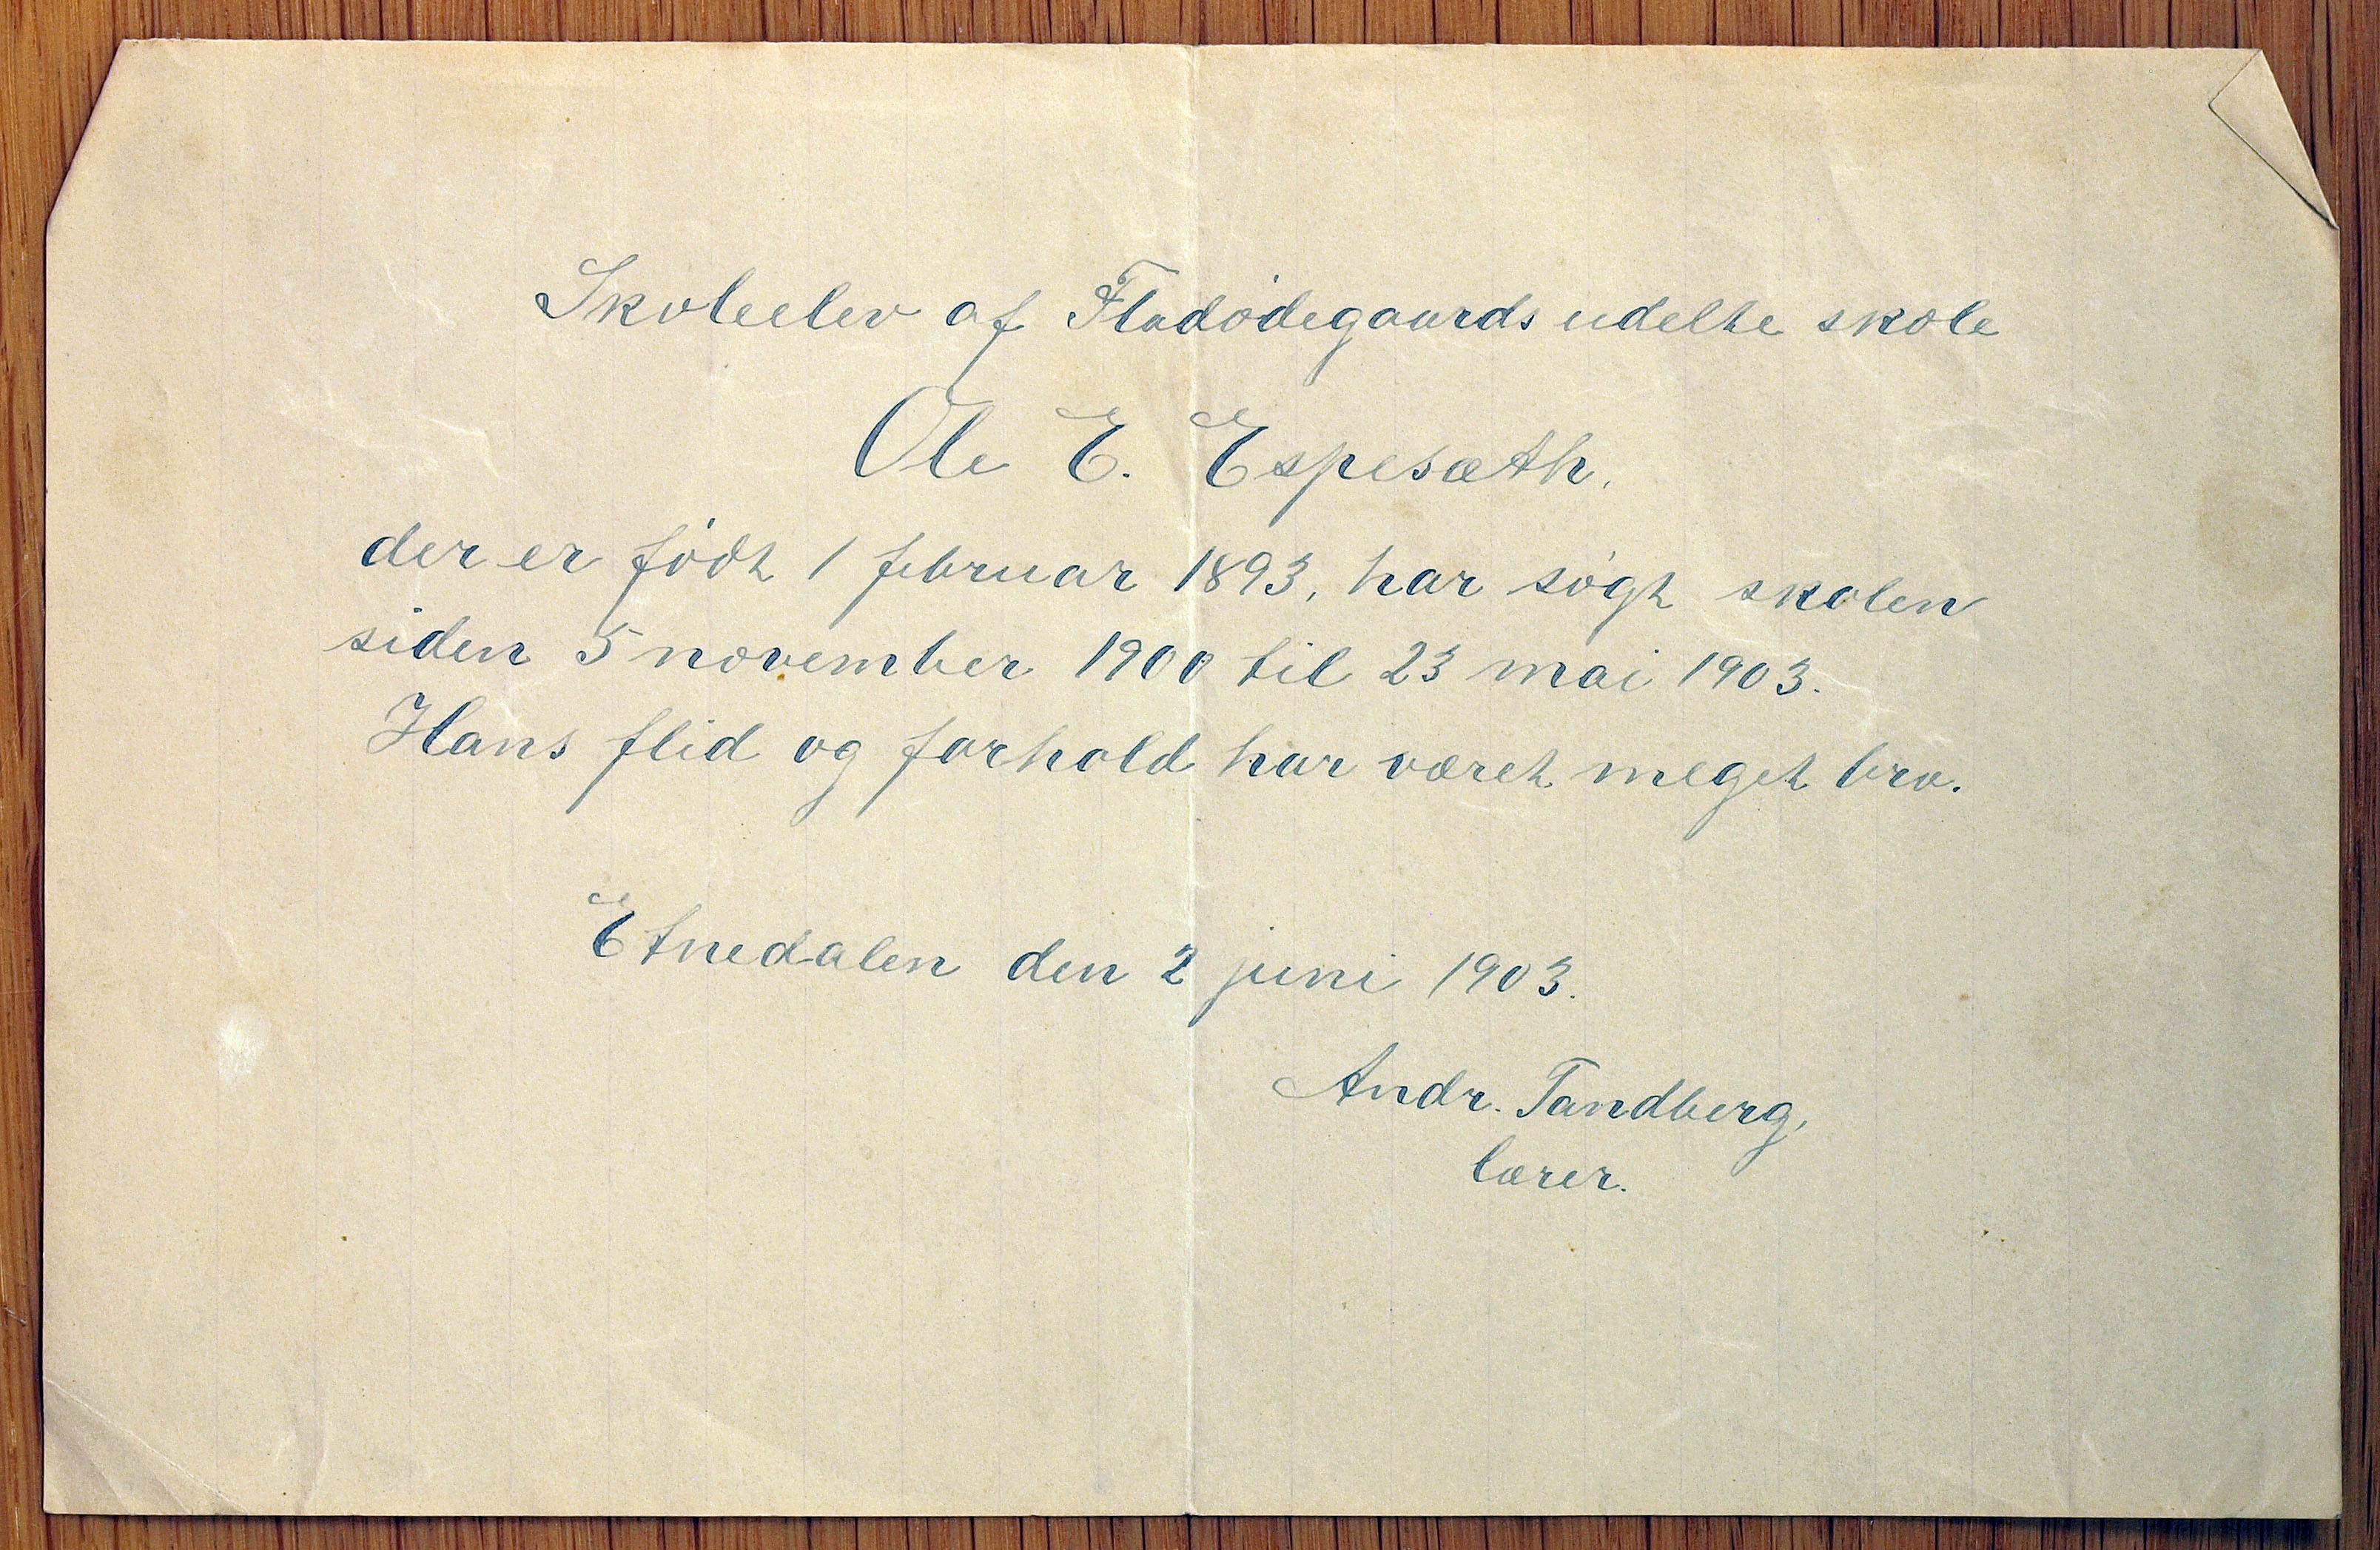 Skoleelev af Fladødegaards udelte skole
Ole E. Espesæth,
der er født 1 februar 1893, har søgt skolen
siden 5 november 1900 til 23 mai 1903.
Hans flid og forhold har været meget bra.
Etnedalen den 2 juni 1903.
Andr. Tandberg,
lærer.